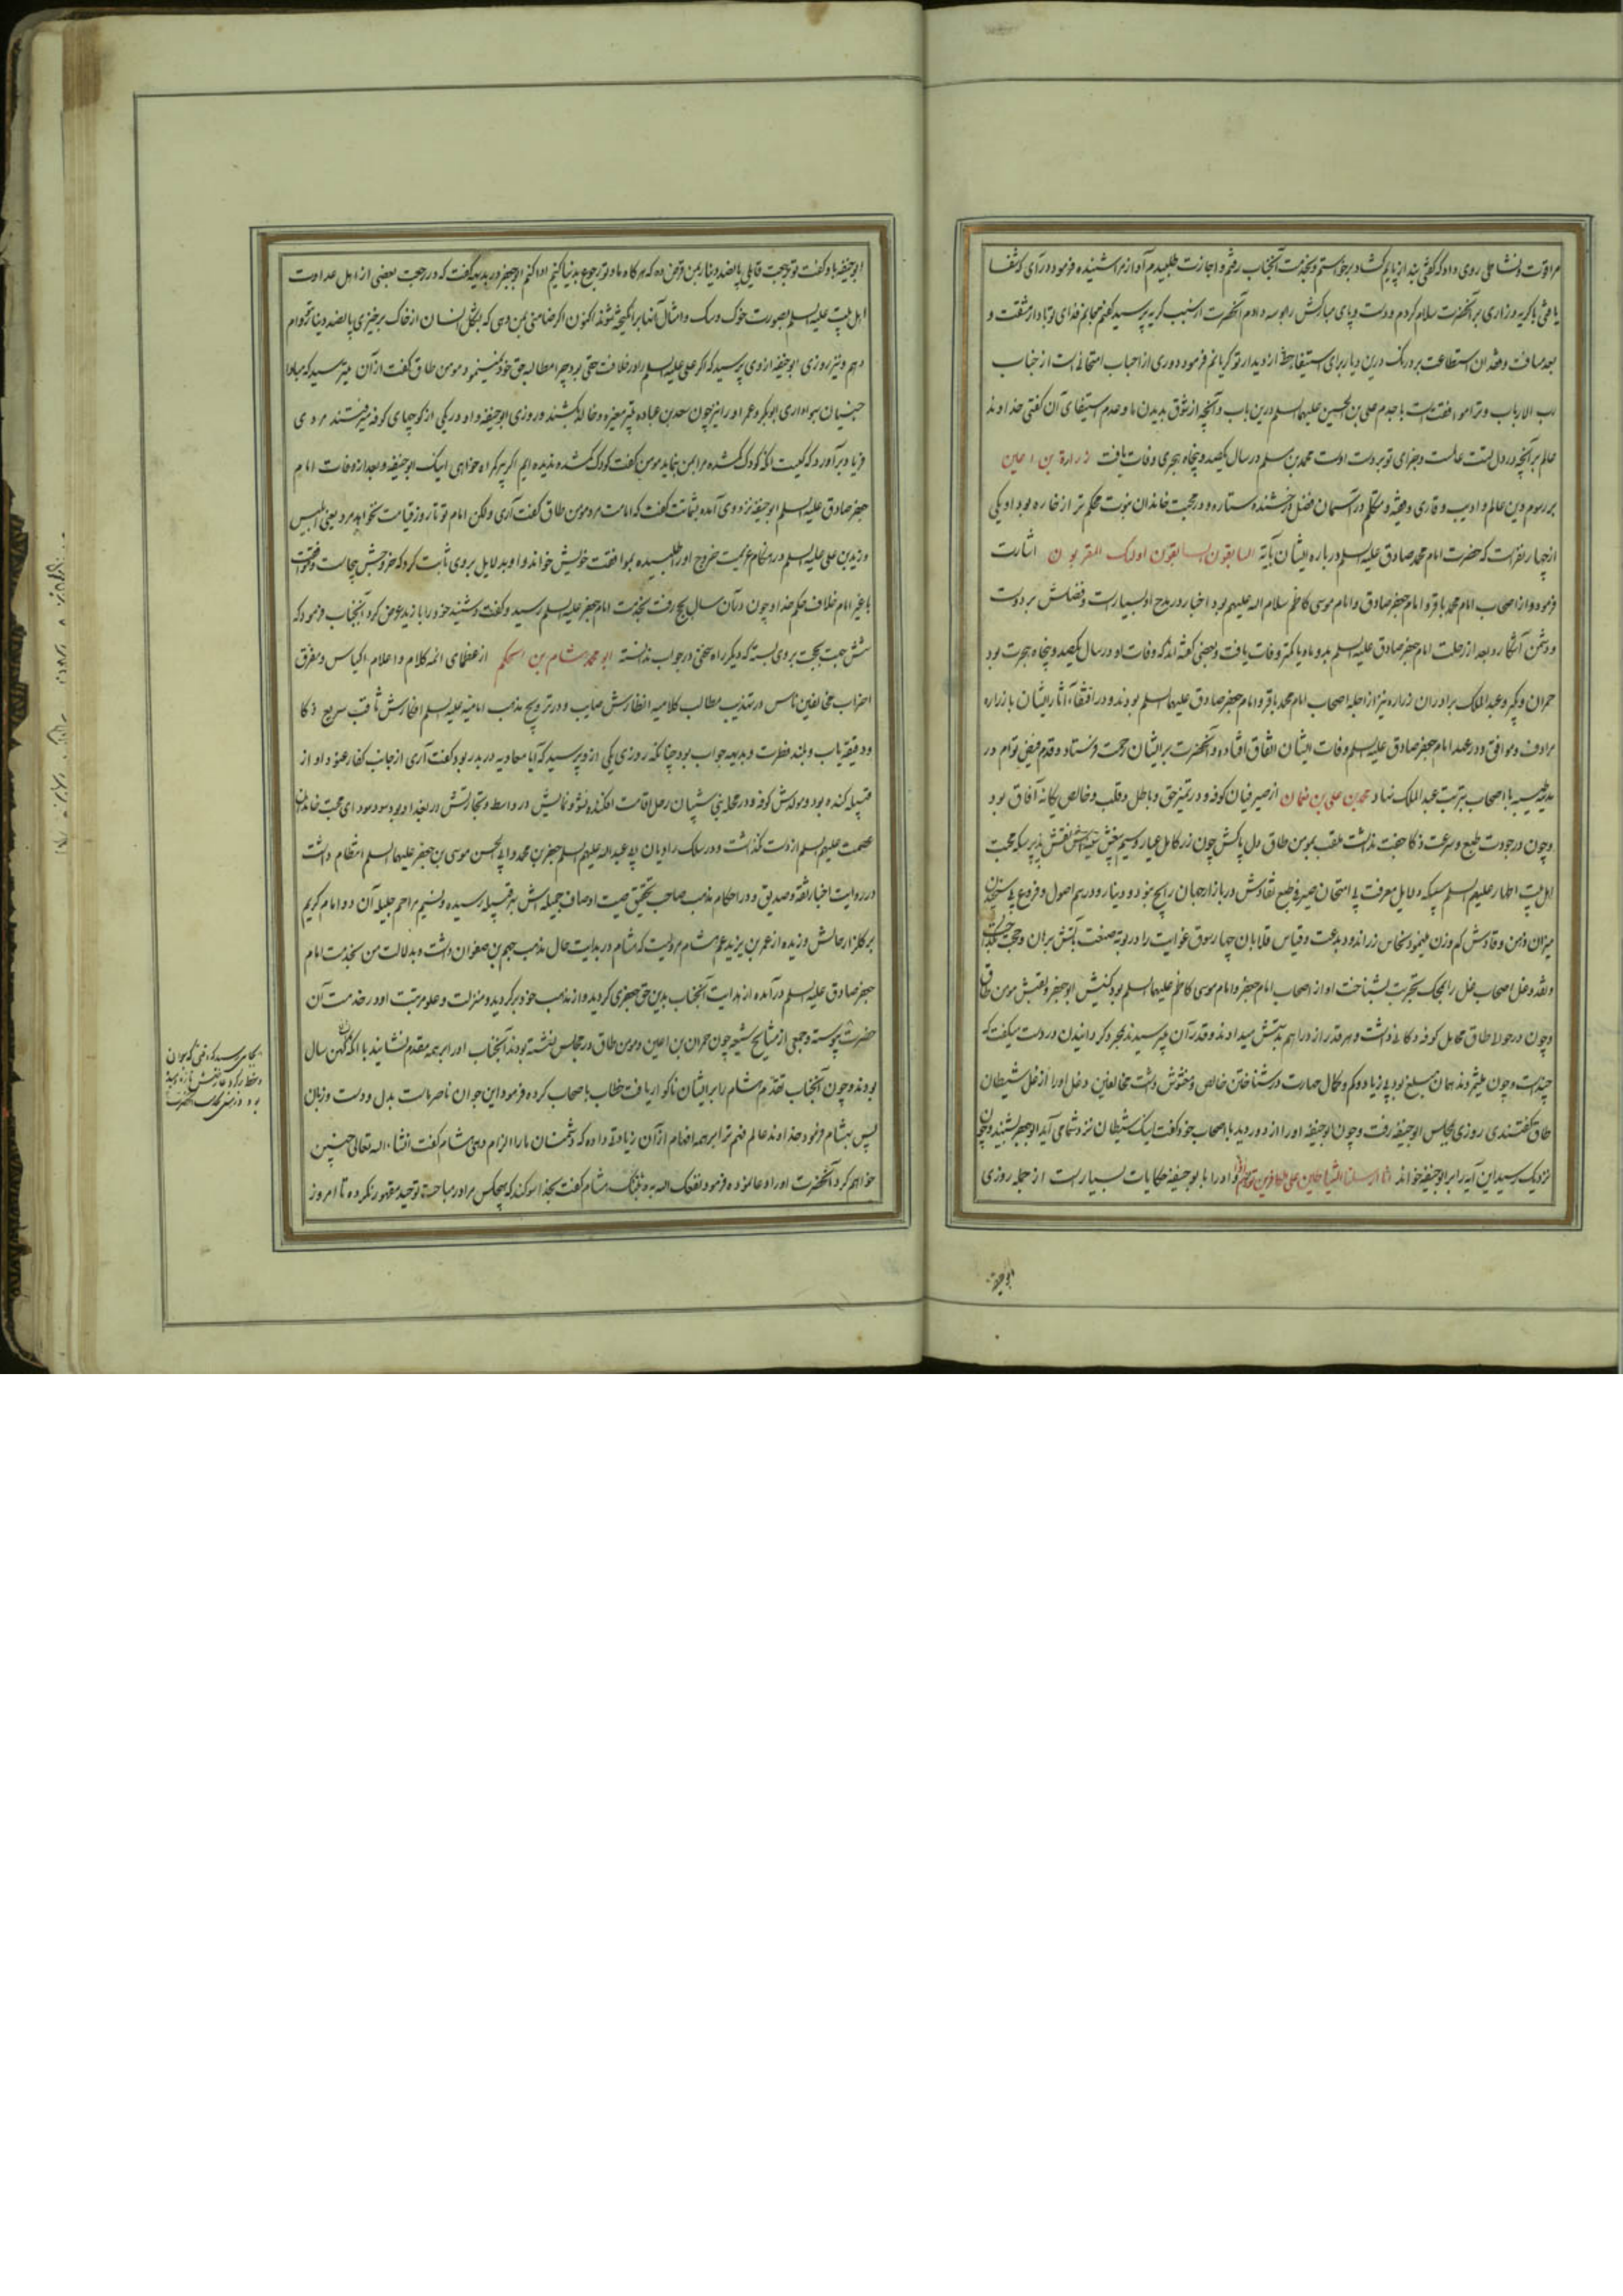 مرا قوت و نشاطی روی داد که گفتی بند از پایم گشاد برخواستم و بخدمت آنجناب رفتم و اجازت طلبیدم آواز مرا شنیده فرمود درآی که شفا
یافتی با گریه و زاری بر آنحضرت سلام کردم و دست و پای مبارکش را بوسه دادم آنحضرت از سبب گریه پرسید گفتم فدای تو باد از مشقت و
بعد مسافت و فقدان استطاعت بر درنگ درین دیار برای استیفا حظ از دیدار تو گریانم فرمود دوری از احباب امتحانی است از جناب
رب الارباب و ترا موافقت است با جدم علی بن الحسین علیهما السلم درین باب و آنچه از شوق بدیدن ما و عدم استیفای آن گفتی خداوند
عالم بر آنچه در دل تست عالمست و جزای تو بر دست اوست محمد بن مسلم در سال یکصد و پنجاه هجری وفات یافت زرارة بن اعین
بر رسوم دین عالم و ادیب و قاری و فقیه و متکلم در آسمان فضل درخشنده ستاره و در محبت خاندان نبوت محکم تر از خاره بود او یکی
از چهار نفر است که حضرت امام محمد صادق علیه السلم درباره ایشان بآیة السابقون السابقون اولئک المقربون اشارت
فرموده و از اصحاب امام محمد باقر و امام جعفر صادق و امام موسی کاظم سلام الله علیهم بود اخبار در مدح او بسیار است و فضلش بر دوست
و دشمن آشکار و بعد از رحلت امام جعفر صادق علیه السلم بدو ماه یا کمتر وفات یافت و بعضی گفته اند که وفات او در سال یکصد و پنجاه هجرت بود
حمران و بکیر و عبد الملک برادران زراره نیز از اجله اصحاب امام محمد باقر و امام جعفر صادق علیهما السلم بودند و در اقتفاء آثار ایشان با زراره
مرادف و موافق و در عهد امام جعفر صادق علیه السلم وفات ایشان اتفاق افتاده و آنحضرت بر ایشان رحمت فرستاد و قدم فیض توام در
مدینه طیبه با اصحاب بتربت عبد الملک نهاد محمد بن علی بن نعمان از صیرفیان کوفه و در تمیز حق و باطل و قلب و خالص یگانه آفاق بود
و چون در جودت طبع و سرعت ذکا جفت نداشت ملقب بمومن طاق دل پاکش چون زر کامل عیار و سیم نقش پذیر سکه محبت
اهل بیت اطهار علیهم السلم سبیکه دلایل معرفت بی امتحان صیرفی طبع نقادش در بازار جهان رایج نبود و دینار و درهم اصول و فروع بی سنجیدن
میزان ذهن وقادش کم وزن مینمود نحاس زر اندود بدعت و قیاس قلابان چهارسوق غوایت را در بوته صنعت بآتش برهان و حجت
و نقد دغل اصحاب ضلال را بمحک تجربت بشناخت او از اصحاب امام جعفر و امام موسی کاظم علیهما السلم بود کنیتش ابو جعفر و لقبش مومن طاق
و چون در جولا طاق محامل کوفه دکانی داشت و هر قدر از دراهم بدستش میدادند و قدر آن میپرسیدند بمجرد گردانیدن در دست میگفت که
چند است و چون میشمردند همان مبلغ بود بی زیاد و کم و کمال مهارت در شناختن خالص و مغشوش داشت مخالفین دغل او را از دغل شیطان
طاق گفتندی روزی بمجلس ابو حنیفه رفت و چون ابو حنیفه او را از دور دید با اصحاب خود گفت اینک شیطان نزد شما می آید ابو جعفر بشنید و چون
نزدیک رسید این آیه را بر ابو حنیفه خواند انا ارسلنا الشیاطین علی الکافرین تؤزهم ازا و او را با ابو حنیفه حکایات بسیار است از جمله روزی
ابو حنیفه
ابو حنیفه باو گفت تو برجعت قایلی پانصد دینار بمن قرض ده که هر گاه ما و تو رجوع بدنیا کنیم ادا کنم ابو جعفر در بدیهه گفت که در رجعت بعضی از اهل عداوت
اهل بیت علیه السلم بصورت خوک و سگ و امثال آنها برانگیخته شوند اکنون اگر ضامنی بمن دهی که بشکل انسان از خاک برخیزی پانصد دینار بتو وام
دهم و نیز روزی ابو حنیفه از وی پرسید که اگر علی علیه السلم را در خلافت حقی بود چرا مطالبه حق خود نمینمود مومن طاق گفت از آن میترسید که مبادا
جنیان بهواداری ابوبکر و عمر او را نیز چون سعد بن عباده بتیر مغیره و خالد بکشند و روزی ابو حنیفه و او در یکی از کوچهای کوفه میرفتند مردی
فریاد برآورد که کیست آنکه کودک گمشده مرا بمن بنماید مومن گفت کودک گمشده ندیده ایم اگر پیر گمراه خواهی اینک ابو حنیفه و بعد از وفات امام
جعفر صادق علیه السلم ابو حنیفه نزد وی آمده بشماتت گفت که امامت مرد مومن طاق گفت آری ولکن امام تو تا روز قیامت نخواهد مرد یعنی ابلیس
و زید بن علی علیه السلم در هنگام عزیمت خروج او را طلبیده بموافقت خویش خواند و او بدلایل بر وی ثابت کرد که خروجش بیجاست
با غیر امام خلاف حکم خدا و چون در آن سال بحج رفت بخدمت امام جعفر علیه السلم رسید و گفت و شنید خود را با زید عرض کرد آنجناب فرمود که
شش جهت بحجت بر وی بسته که دیگر راه سخنی در جواب ندانسته ابو محمد هشام بن الحکم از عظمای ائمه کلام و اعلام اکیاس و مفرق
احزاب مخالفین ناس در تهذیب مطالب کلامیه انظارش صایب و در ترویج مذهب امامیه علیه السلم افکارش ثاقب سریع ذکا
و دقیقه یاب و بلند فطرت و بدیهه جواب بود چنانکه روزی یکی از وی پرسید که آیا معاویه در بدر بود گفت آری از جانب کفار عنود او از
قبیله کنده بود و مولدش کوفه و در محله بنی شیبان رحل اقامت افکنده نشو و نمایش در واسط و تجارتش در بغداد بود و سودای محبت خاندان
عصمت علیهم السلم از دست نگذاشت و در سلک راویان ابی عبد الله علیه السلم جعفر بن محمد و ابی الحسن موسی بن جعفر علیهما السلم انتظام داشت
در روایت اخبار ثقه و صدیق و در احکام مذهب صاحب تحقیق صیت اوصاف جمیله اش بهر قبیله رسیده و نسیم مراحم جلیله آن دو امام کریم
بر گلزار حالش وزیده از عمر بن یزید عم هشام مرویست که هشام در بدایت حال مذهب جهم بن صفوان داشت و بدلالت من بخدمت امام
جعفر صادق علیه السلم درآمده از هدایت آنجناب بدین حق جعفری گردید و از مذهب خود برگردید و منزلت و علو مرتبت او در خدمت آن
حضرت پیوسته و جمعی از مشایخ شیعه چون حمران بن اعین و مومن طاق در مجلس نشسته بودند آنجناب او را بر همه مقدم نشانید با آنکه کهن سال
بودند و چون آنجناب تقدیم هشام را بر ایشان ناگوار یافت خطاب باصحاب کرده فرمود این جوان ناصر ماست بدل و دست و زبان
پس بهشام فرمود خداوند عالم فهم ترا بر همه افهام از آن زیادتی داده که دشمنان ما را الزام دهی هشام گفت انشاء الله تعالی چنین
خواهم کرد آنحضرت او را دعا نموده فرمود نفعک الله به و ثبتک هشام گفت بخدا سوگند که هیچکس مرا در مباحث توحید مقهور نکرده تا امروز